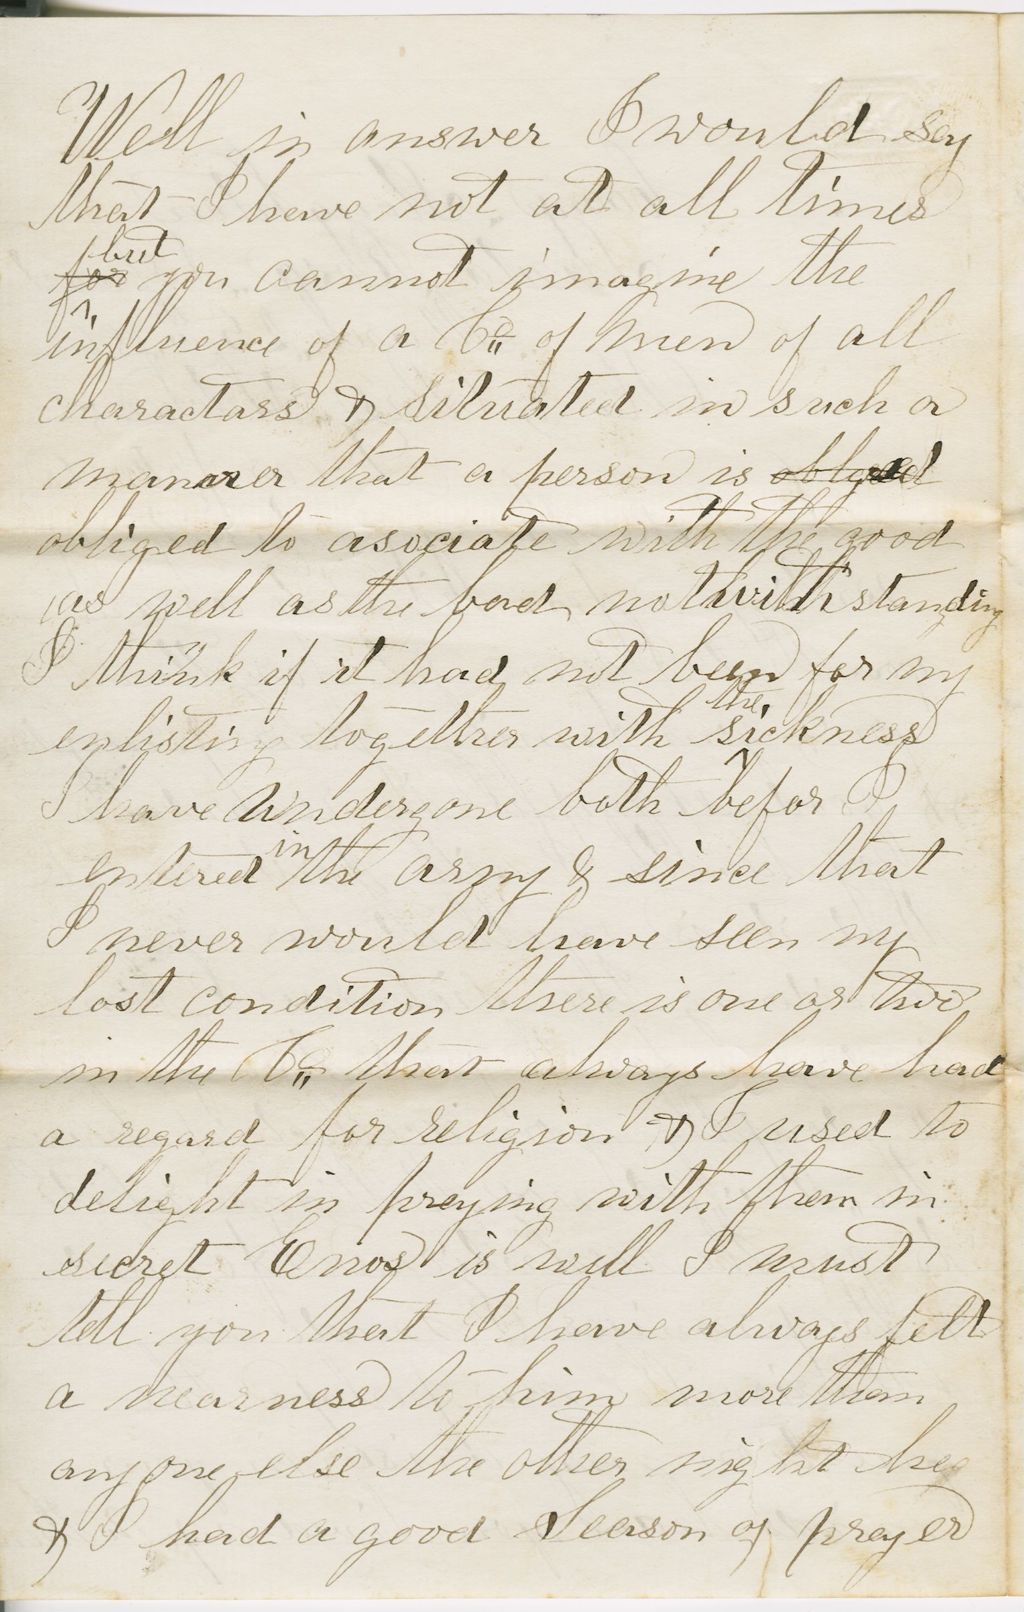 Well in answer I would say
that I have not at all times
for but you cannot imagine the
influence of a Co. of men of all
charactars & situated in such a
manner that a person is obliged
obliged to asociate with the good
as well as the bad notwithstanding
I think if it had not been for my
enlisting together with the sickness
I have undergone both befor I
entered in the army & since that
I never would have seen my
lost condition there is one or two
in the Co. that always have had
a regard for religion & I used to
delight in praying with them in
secret Enos is well I must
tell you that I have always felt
a nearness to him more than
anyone else the other night he
& I had a good season of prayer